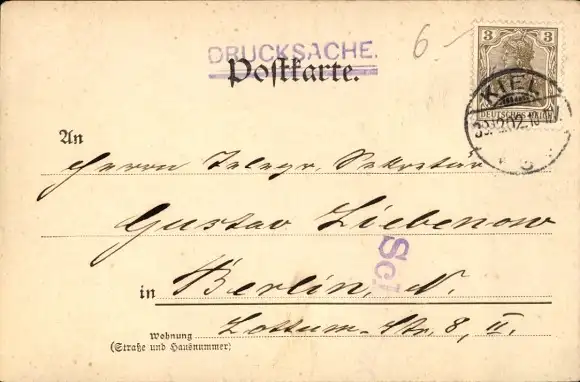 DRUCKSACHE.
Postkarte.
6
3 3
DEUTSCHES REICH
KIEL
An
Herrn Telegr. Sekretär
Gustav Liebenow
Sch
in Berlin, N.
Lottum-Str. 8, II.
Wohnung
(Straße und Hausnummer)